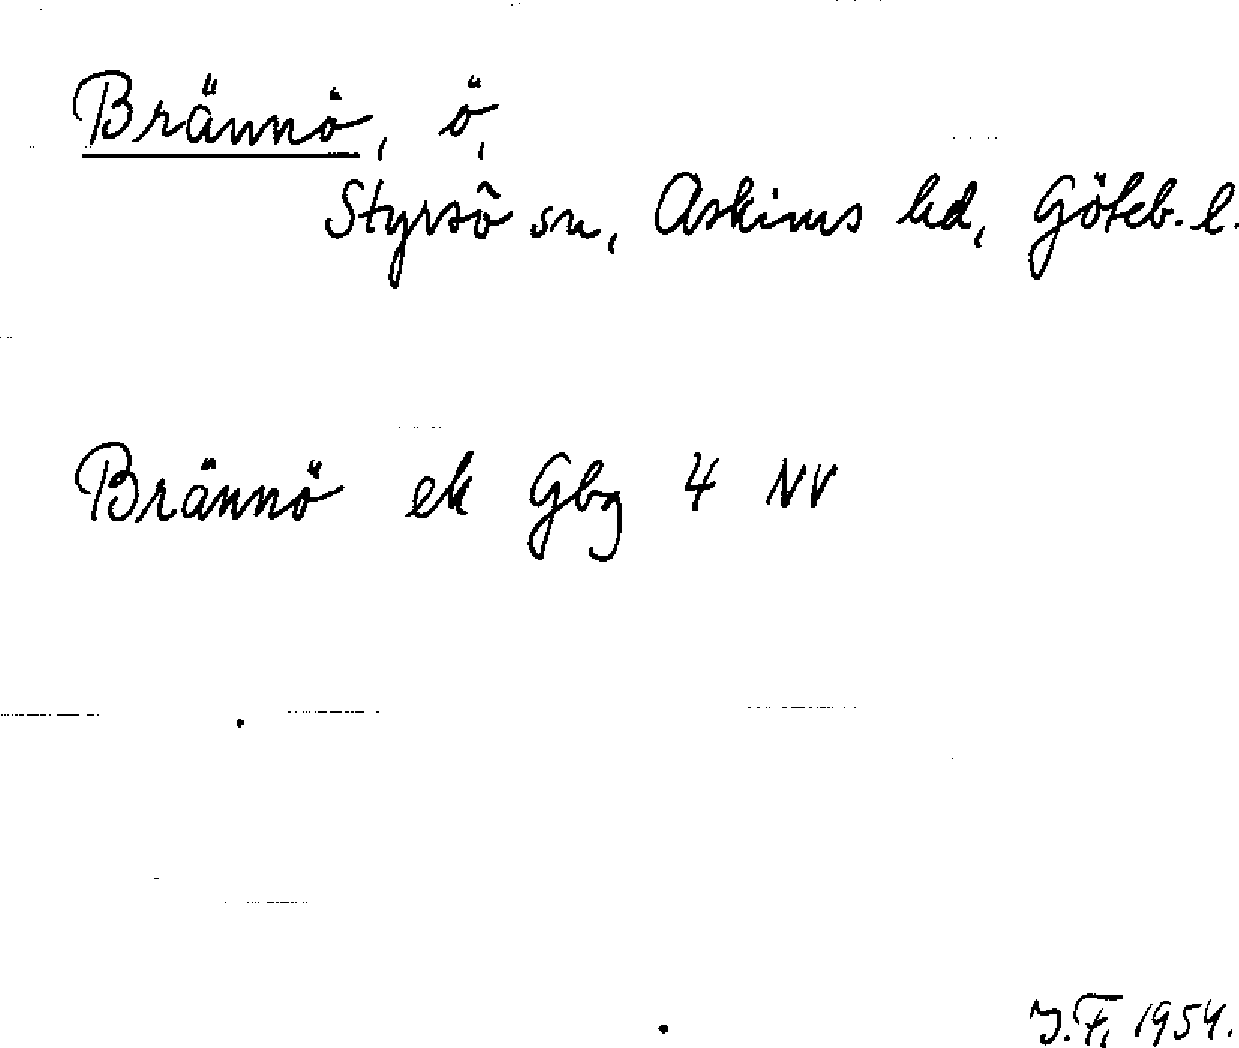 Brännö, ö,
Styrsö sn, Askims hd, Göteb. l.
Brännö ek Gbg 4 NV
J.F. 1954.